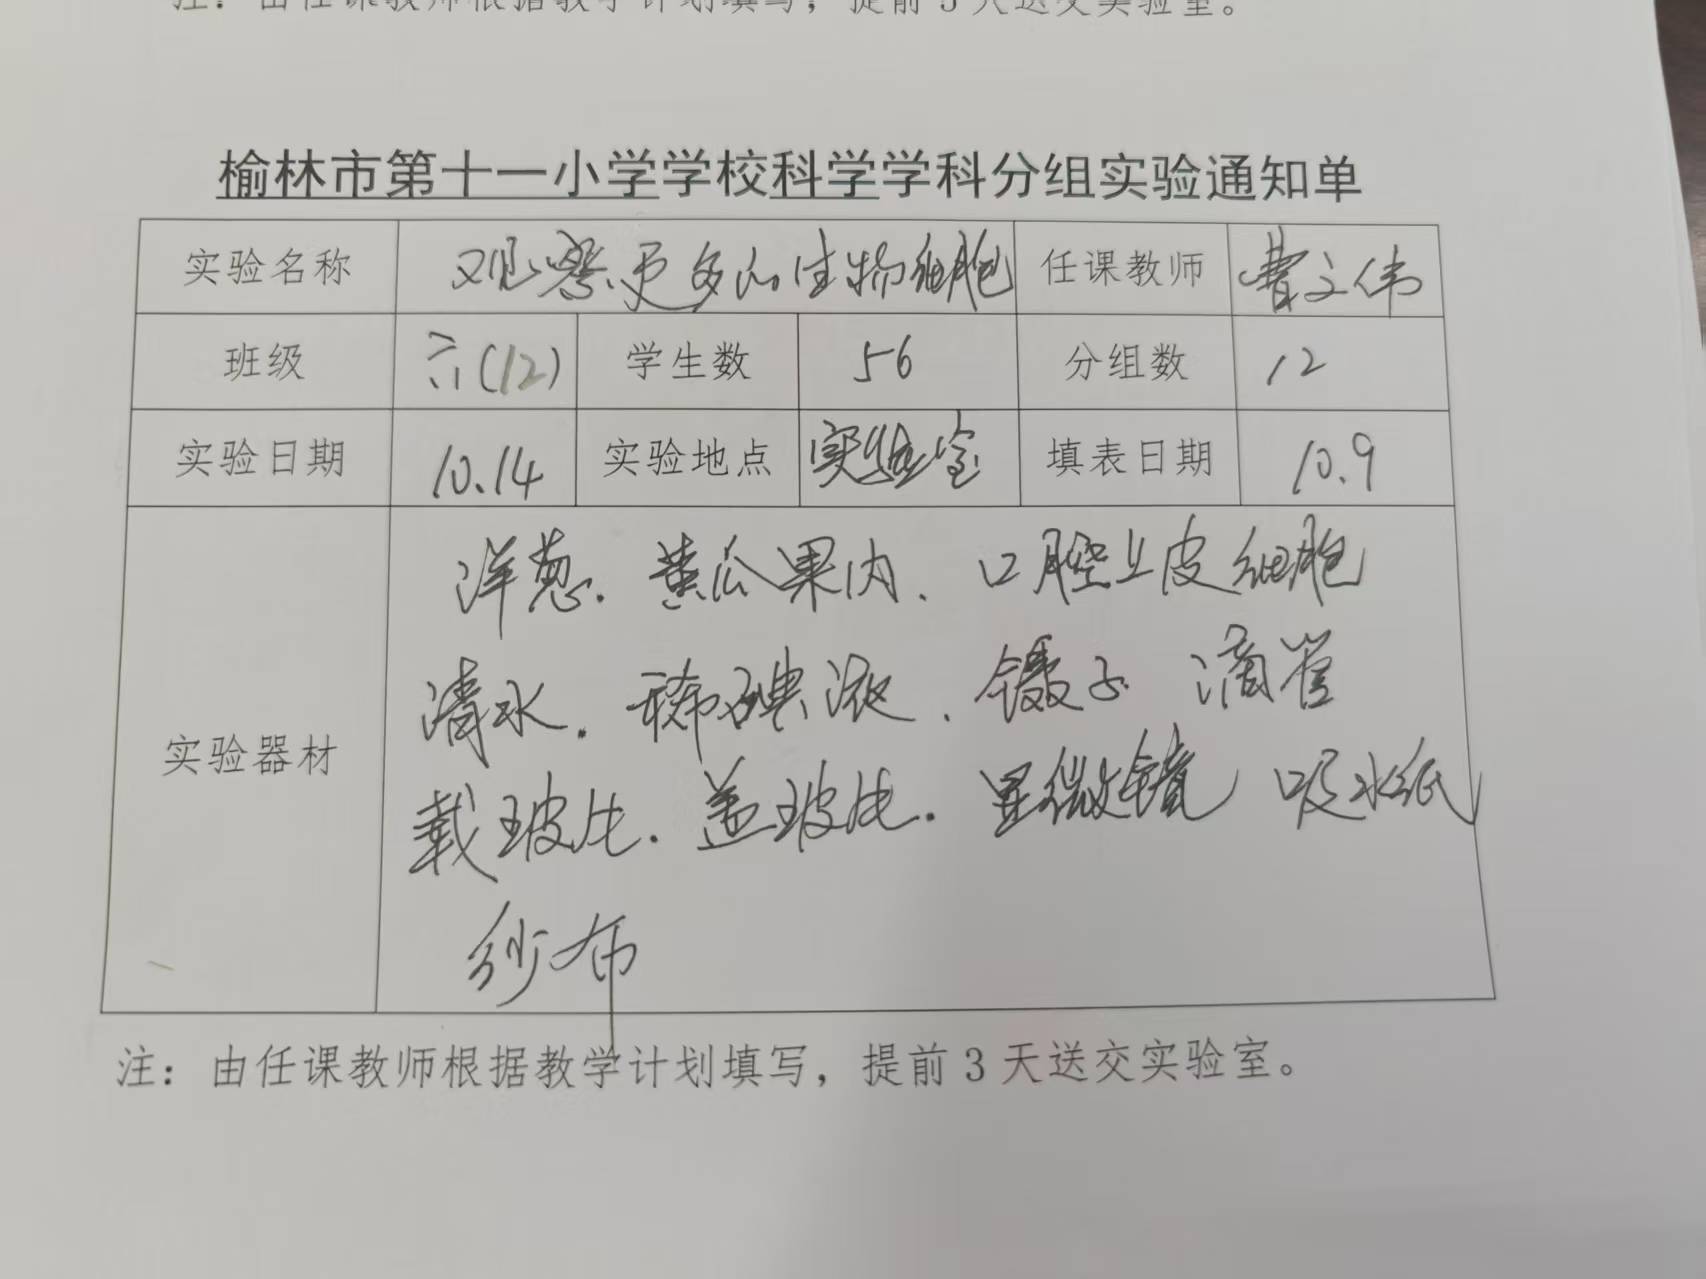 注：由任课教师根据教学计划填写，提前3天送交实验室。
榆林市第十一小学学校科学学科分组实验通知单
实验名称 观察更多的生物细胞 任课教师 曹文伟
班级 六(12) 学生数 56 分组数 12
实验日期 10.14 实验地点 实验室 填表日期 10.9
实验器材
洋葱.黄瓜果肉.口腔上皮细胞
清水.稀碘液.镊子 滴管
载玻片.盖玻片.显微镜 吸水纸
纱布
注：由任课教师根据教学计划填写，提前3天送交实验室。